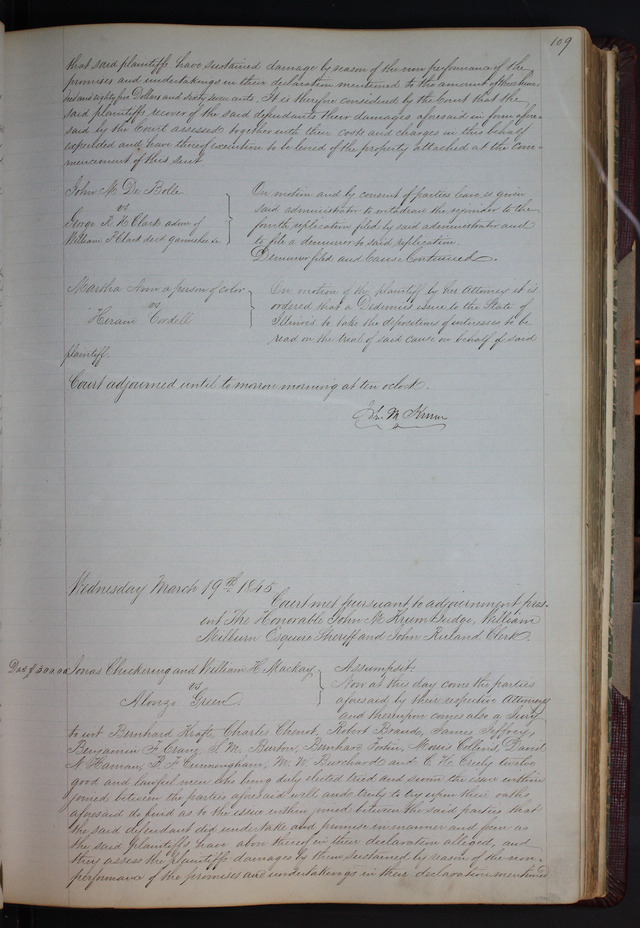 109
that said plaintiffs have sustained damage by reason of the non performance of the
promises and undertakings in their declaration mentioned to the amount of three hun-
dred and eighty five Dollars and sixty seven cents. It is therefore considered by the Court that the
said plaintiffs recover of the said defendants their damages aforesaid in form afore-
said by the Court assessed together with their costs and charges in this behalf
expended and have thereof execution to be levied of the property attached at the com-
mencement of this suit.
John M De Bolle
vs
George K. H Clark admr of
William P Clark decd garnishee &c
On motion and by consent of parties leave is given
said administrator to withdraw the rejoinder to the
fourth replication filed by said administrator and
to file a demurrer to said replication.
Demurrer filed and Cause Continued.
Martha Ann a person of color
vs
Heram Cordell
On motion of the plaintiff by her Attorney it is
ordered that a Dedimus issue to the State of
Illinois to take the depositions of witnesses to be
read on the trial of said cause on behalf of said
plaintiff.
Court adjourned until to morrow morning at ten oclock.
Jno M Krum
Wednesday March 19th 1845
Court met pursuant to adjournment pres-
ent The Honorable John M Krum Judge, William
Milburn Esquire Sheriff and John Ruland Clerk.
Jonas Chickering and William H. Mackay
vs
Alonzo Green
Assumpsit
Now at this day come the parties
aforesaid by their respective Attorneys
and thereupon comes also a Jury
to wit Bernhard Krafft, Charles Chenot, Robert Brande, James Jeffrey,
Benjamin F Crane, S. M. Burton, Bernhard Fohn, Moses Collins, David
N Haman, B. F Cunningham, M. W. Burchard and C. H. Creely twelve
good and lawful men who being duly elected tried and sworn the issue within
joined between the parties aforesaid well and truly to try upon their oaths
aforesaid do find as to the issue within joined between the said parties that
the said defendant did undertake and promise in manner and form as
the said plaintiffs have above thereof in their declaration alleged, and
they assess the plaintiffs damages by them sustained by reason of the non-
performance of the promises and undertakings in their declaration mentioned